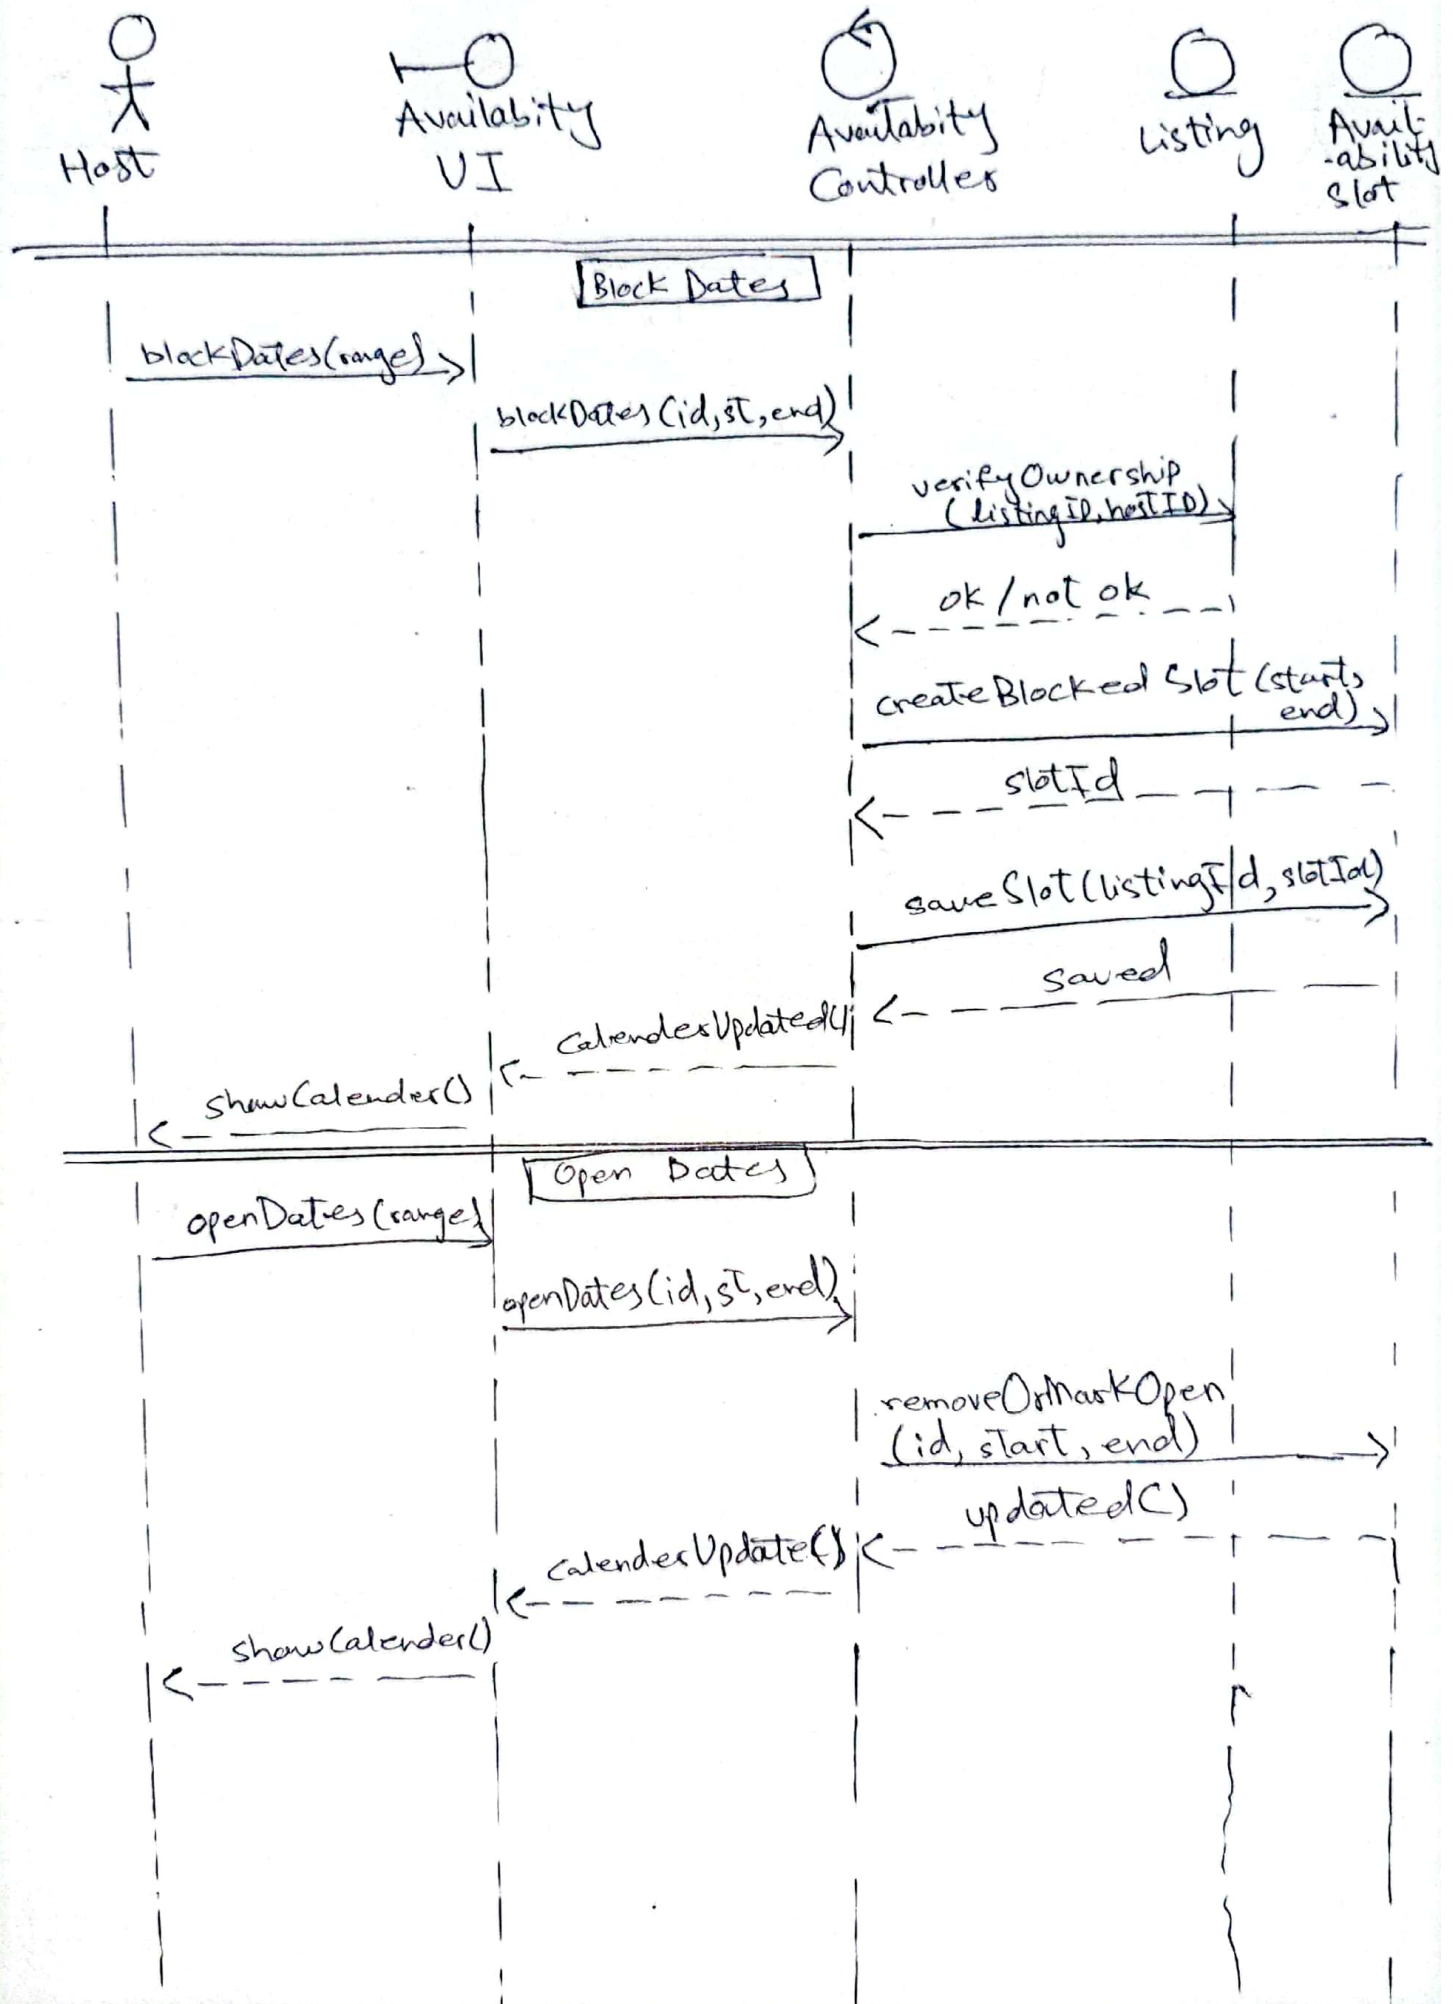 Host
Availabity
UI
Availabity
Controller
Listing
Avail-
-ability
Slot
Block Dates
blockDates(range)
blockDates(id,st,end)
verifyOwnership
(listingID,hostID)
ok/not ok
createBlocked Slot(start,
end)
slotId
saveSlot(listingId,slotId)
saved
CalenderUpdated()
showCalender()
Open Dates
openDates(range)
openDates(id,st,end)
removeOrMarkOpen
(id, start, end)
updated()
CalenderUpdate()
showCalender()